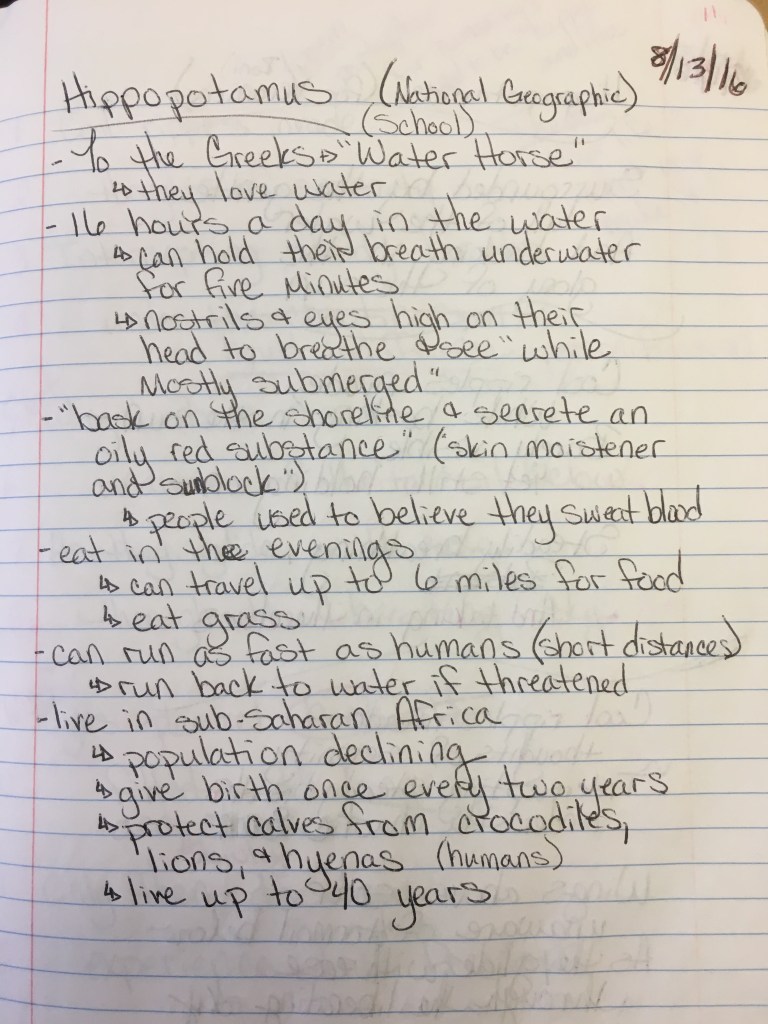 11
8/13/16
Hippopotamus (National Geographic)
(School)
- To the Greeks ↳ "Water Horse"
↳ they love water
- 16 hours a day in the water
↳ can hold their breath underwater
for five minutes
↳ nostrils & eyes high on their
head to breathe & see "while
Mostly submerged"
- "bask on the shoreline & secrete an
oily red substance" ("skin moistener
and sunblock")
↳ people used to believe they sweat blood
- eat in the evenings
↳ can travel up to 6 miles for food
↳ eat grass
- can run as fast as humans (short distances)
↳ run back to water if threatened
- live in sub-Saharan Africa
↳ population declining
↳ give birth once every two years
↳ protect calves from crocodiles,
lions, & hyenas (humans)
↳ live up to 40 years